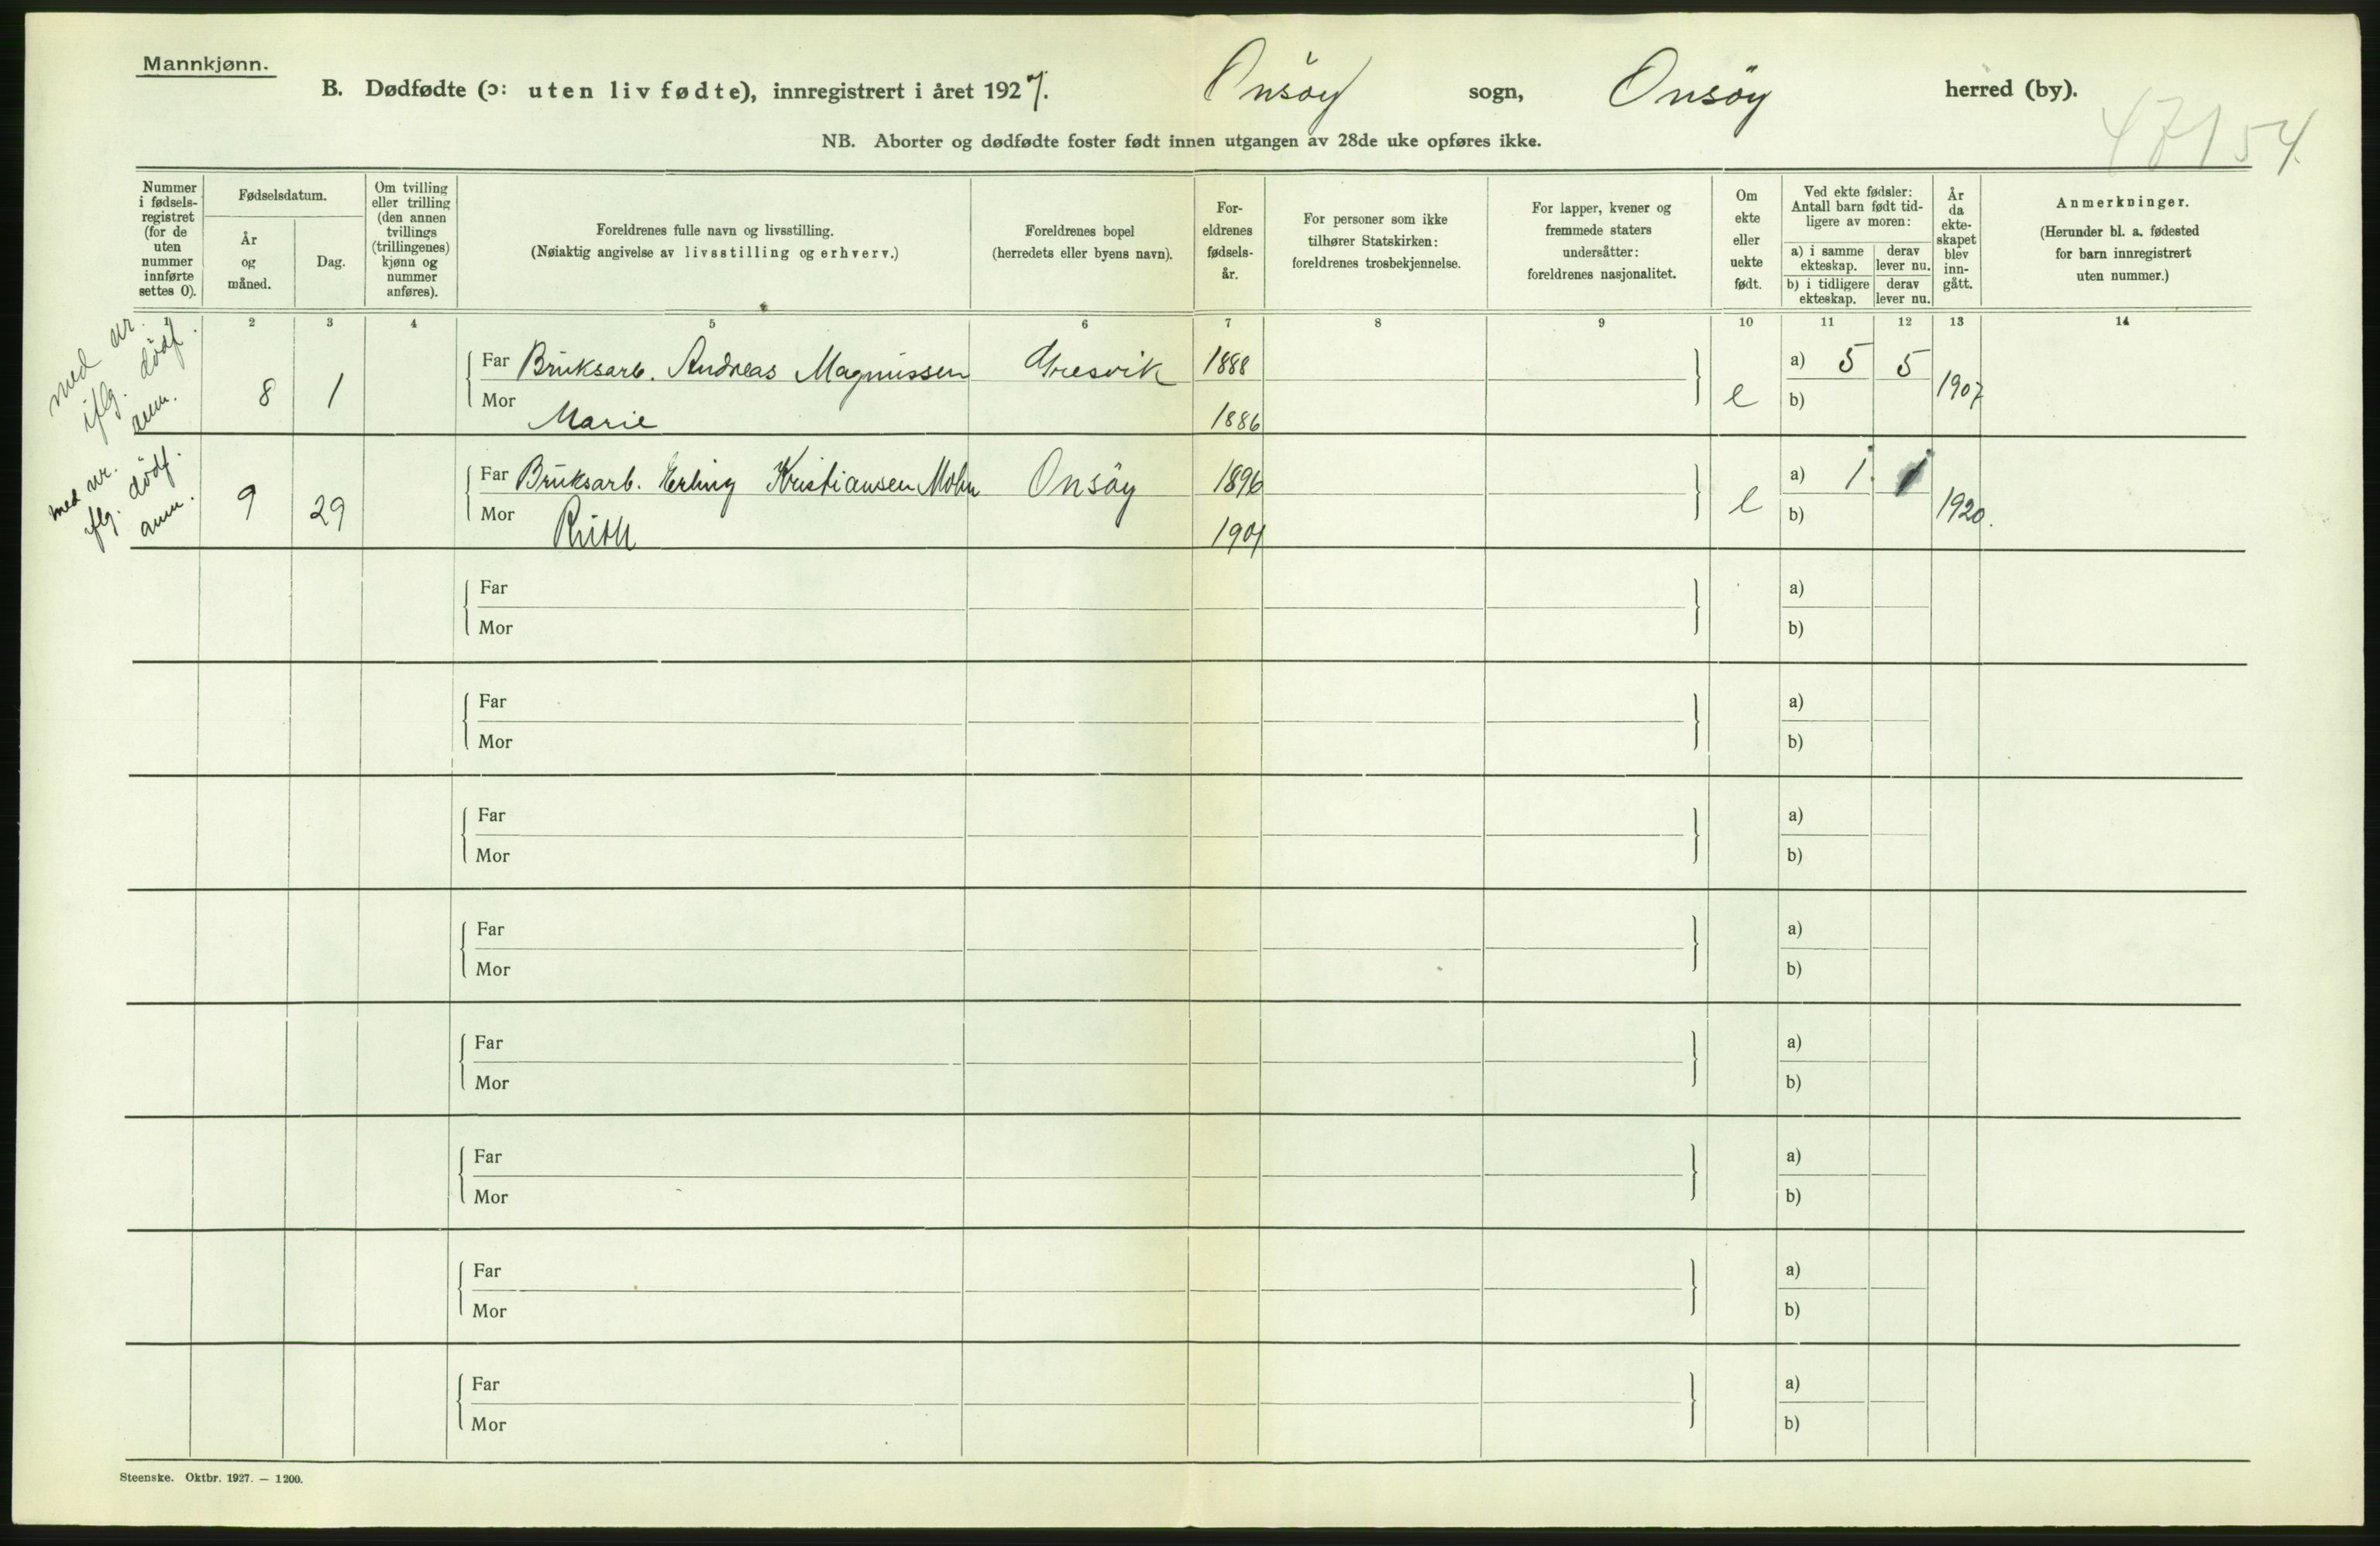 Mannkjønn.
B. Dødfødte (ɔ: uten liv fødte), innregistrert i året 1927. Onsøy sogn, Onsøy herred (by).
47154
NB. Aborter og dødfødte foster født innen utgangen av 28de uke opføres ikke.
Nummer i fødselsregistret (for de uten nummer innførte settes 0).
Fødselsdatum.
År og måned.
Dag.
Om tvilling eller trilling (den annen tvillings (trillingenes) kjønn og nummer anføres).
Foreldrenes fulle navn og livsstilling.
(Nøiaktig angivelse av livsstilling og erhverv.)
Foreldrenes bopel
(herredets eller byens navn).
Foreldrenes fødselsår.
For personer som ikke tilhører Statskirken: foreldrenes trosbekjennelse.
For lapper, kvener og fremmede staters undersåtter: foreldrenes nasjonalitet.
Om ekte eller uekte født.
Ved ekte fødsler: Antall barn født tidligere av moren:
a) i samme ekteskap.
derav lever nu.
b) i tidligere ekteskap.
derav lever nu.
År da ekteskapet blev inngått.
Anmerkninger.
(Herunder bl. a. fødested for barn innregistrert uten nummer.)
1 2 3 4 5 6 7 8 9 10 11 12 13 14
med nr.
iflg. dödf.
anm.
8 1 Far Bruksarb. Andreas Magnussen Gresvik 1888 e a) 5 5 1907
Mor Marie 1886 b)
med nr.
iflg. dödf.
anm.
9 29 Far Bruksarb. Erling Kristiansen Mohn Onsöy 1896 e a) 1. 1 1920.
Mor Ruth 1901 b)
Far a)
Mor b)
Far a)
Mor b)
Far a)
Mor b)
Far a)
Mor b)
Far a)
Mor b)
Far a)
Mor b)
Far a)
Mor b)
Far a)
Mor b)
Steenske. Oktbr. 1927. — 1200.